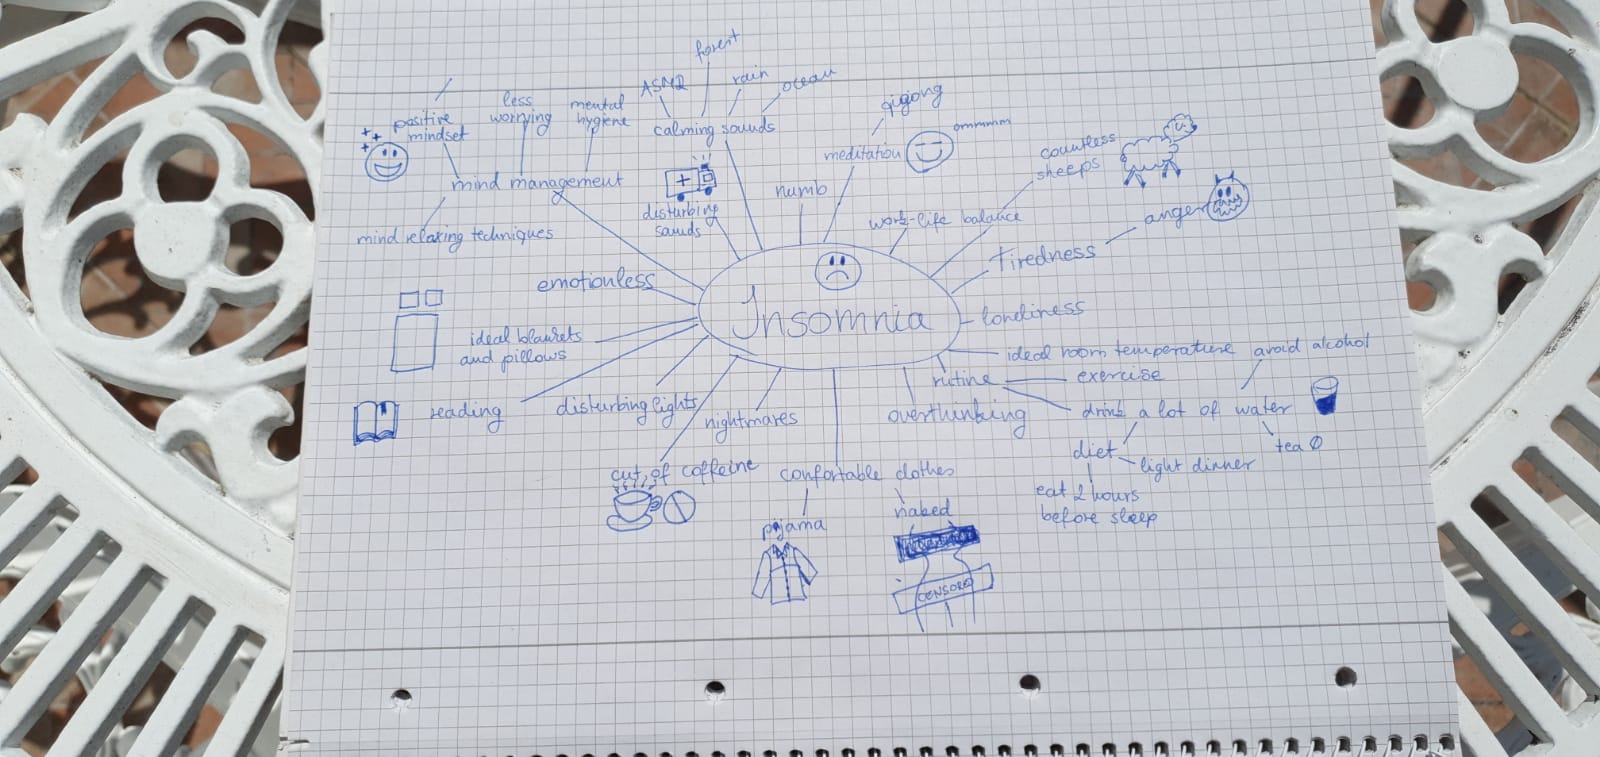 forest
ASMR
rain
ocean
less
worrying
mental
hygiene
positive
mindset
calming sounds
qigong
ommmm
meditation
countless
sheeps
mind management
numb
disturbing
sounds
work-life balance
anger
mind relaxing techniques
tiredness
emotionless
Insomnia
loneliness
ideal blankets
and pillows
ideal room temperature
avoid alcohol
rutine
exercise
reading
disturbing lights
nightmares
overthinking
drink a lot of water
tea Ø
diet
light dinner
cut of coffeine
confortable clothes
eat 2 hours
before sleep
pyjama
naked
CENSORED